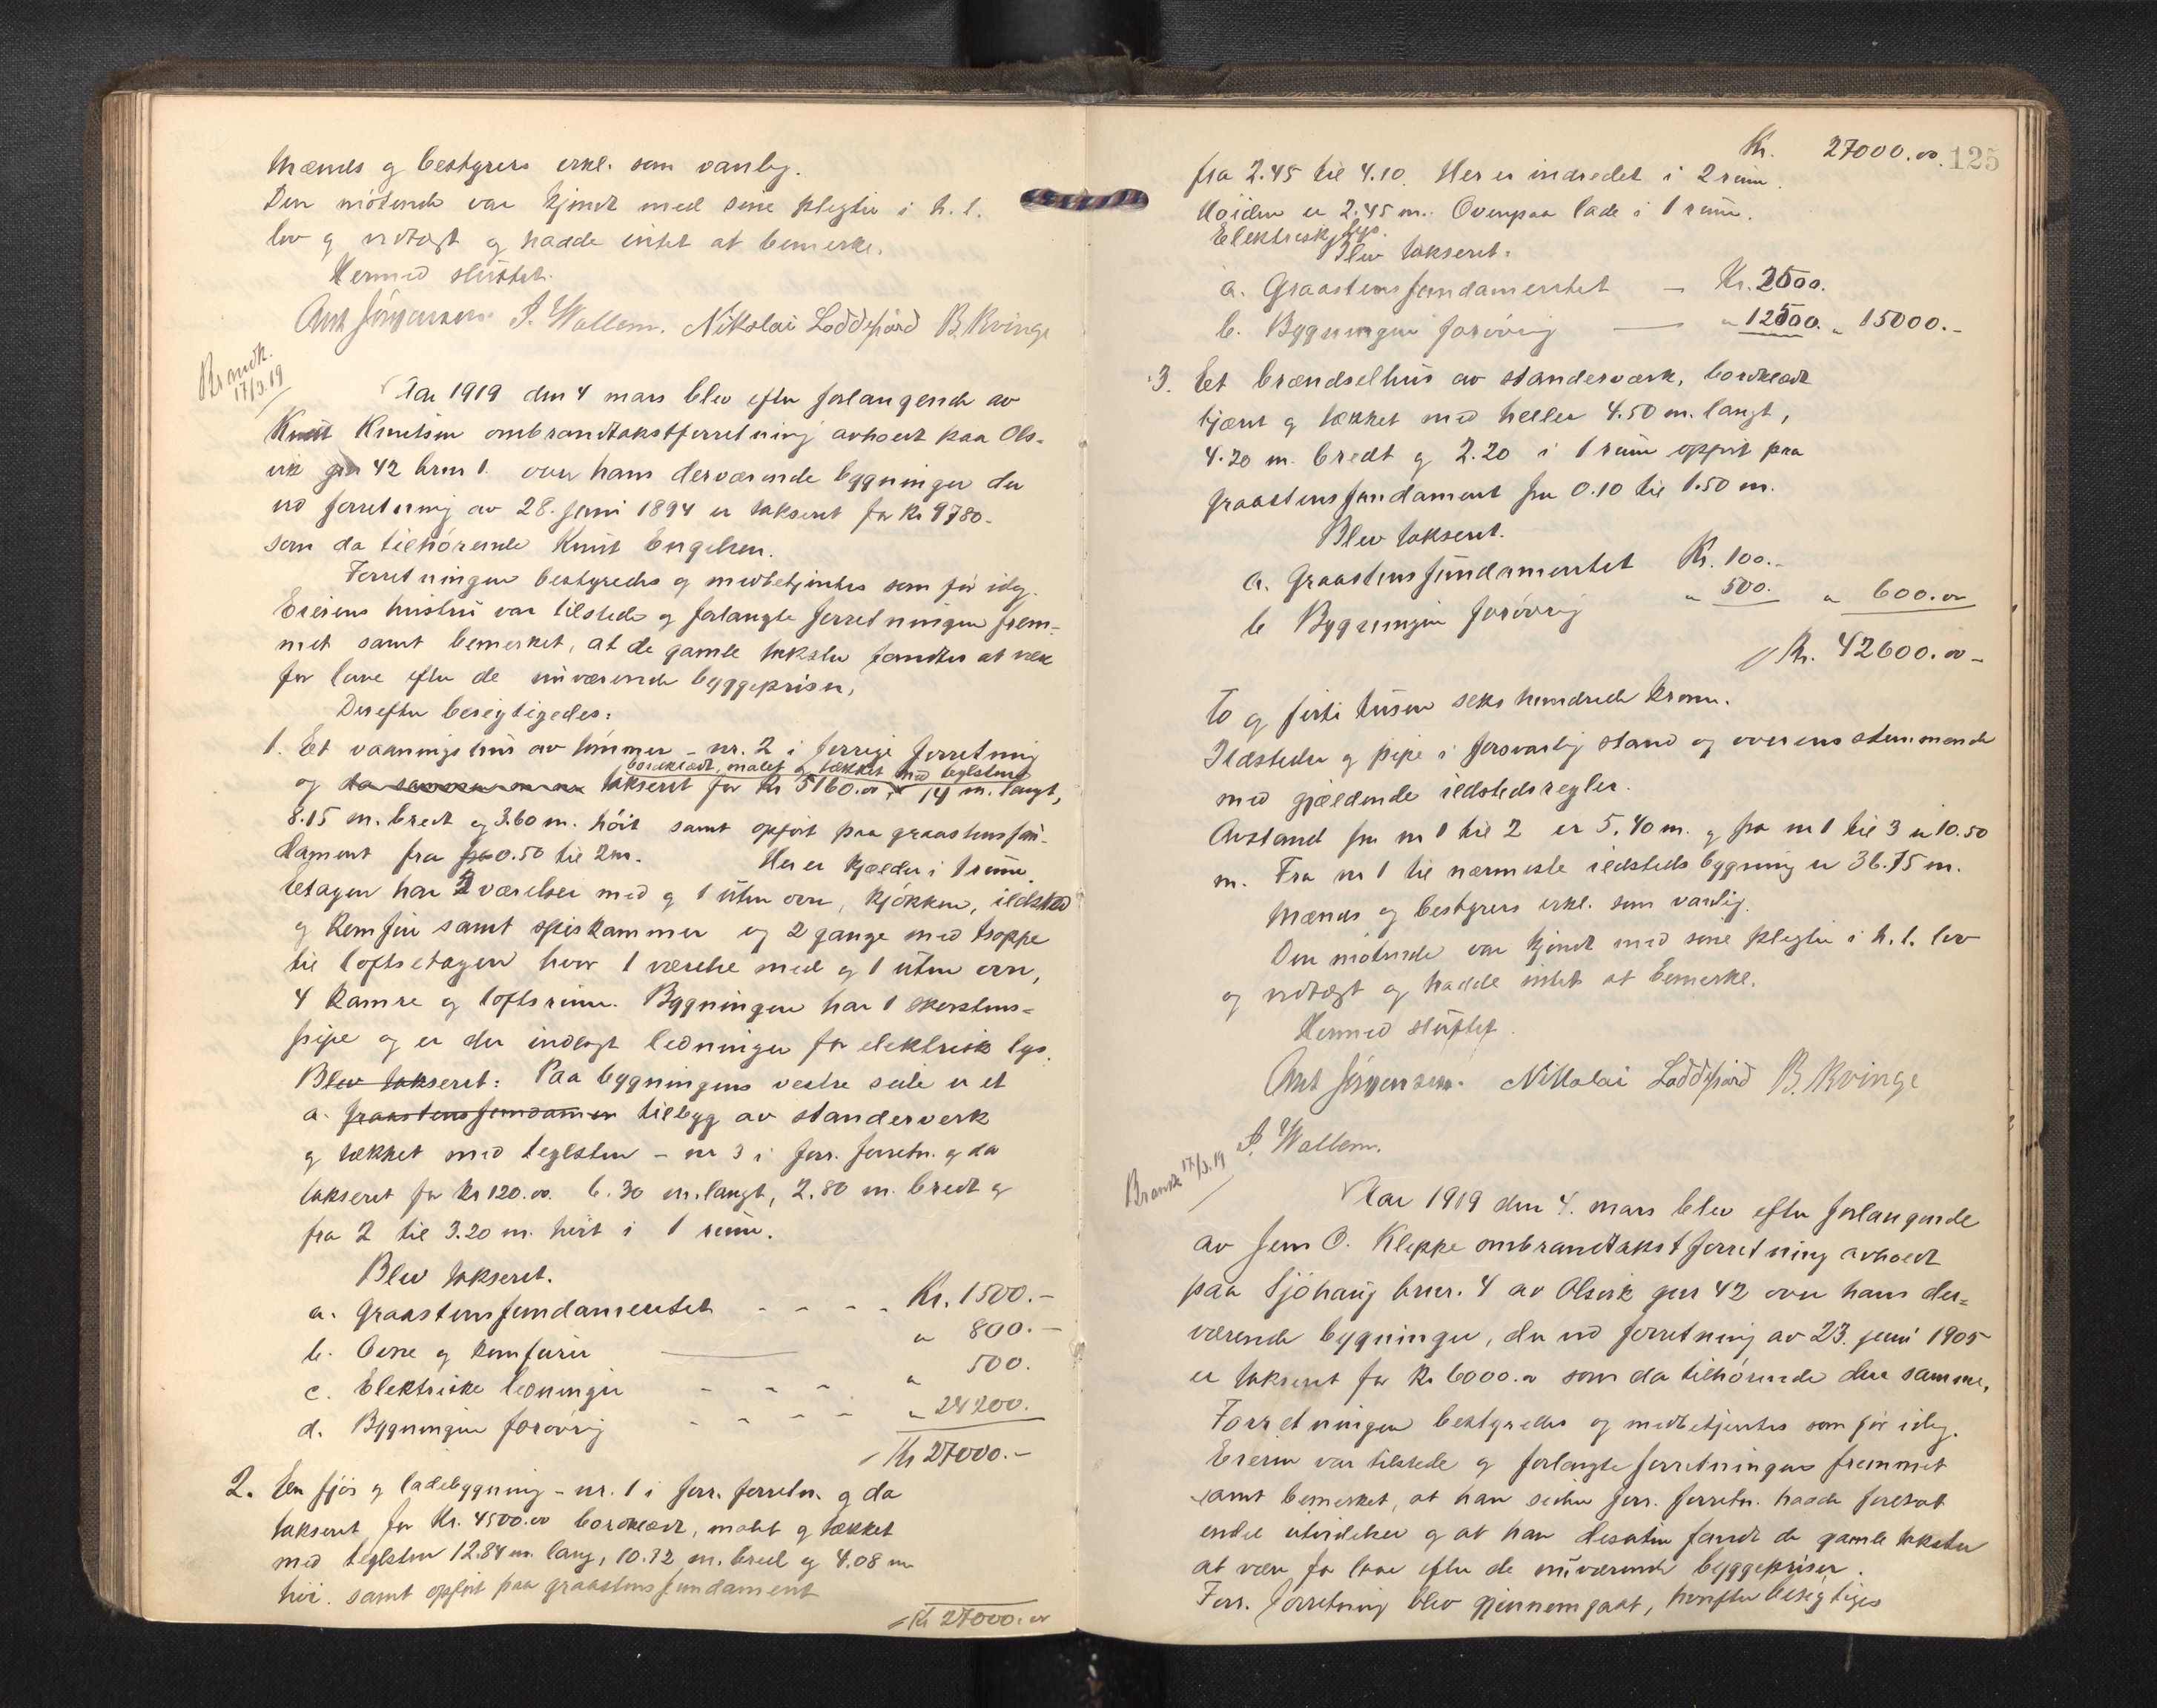 Mænds og bestyrers erkl. som vanlig.
Den mötende var kjendt med sine plegter i h. t.
lov og vedtægt og hadde intet at bemerke.
Hermed sluttet.
Ant Jörgensen. P. Wallem. Nikolai Loddefjord B. Kvinge
Brandk.
17/3.19
Aar 1919 den 4 mars blev efter forlangende av
Knut Knutsen ombrandtakstforretning avholdt paa Ols-
vik gnr 42 brnr 1. over hans derværende bygninger der
ved forretning av 28. juni 1894 er takseret for Kr 9780.-
som da tilhörende Knut Engelsen.
Forretningen bestyredes og medbetjentes som för idag.
Eierens hustru var tilstede og forlangte forretningen frem-
met samt bemerket, at de gamle takster fandtes at være
for lave efter de nuværende byggepriser.
Derefter besigtigedes:
1. Et vaaningshus av tömmer - nr. 2 i forrige forretning
bordklædt, malet og tækket med teglsten
og takseret for Kr 5160.00, 14 m. langt,
8.15 m. bredt og 3.60 m. höit samt opfört paa graastensfun-
dament fra 0.50 til 2 m. Her er kjælder i 1 rum.
Etagen har 2 værelser med og 1 uten ovn, kjökken, ildsted
og komfur samt spiskammer og 2 gange med trappe
til loftsetagen hvor 1 værelse med og 1 uten ovn,
4 kamre og loftsrum. Bygningen har 1 skorstens-
pipe og er der indlagt ledninger for elektrisk lys.
Blev takseret: Paa bygningens vestre side er et
a. Graastensfundamen tilbyg av standerverk
og tækket med teglsten - nr 3 i forr. forretn. og da
takseret for Kr 120.00. 6.30 m. langt, 2.80 m. bredt og
fra 2 til 3.20 m. höit i 1 rum.
Blev takseret.
a. Graastensfundamentet - - - - Kr. 1500.-
b. Ovne og komfurer " 800.-
c. Elektriske ledninger - - - " 500.
d. Bygningen forövrig - - - - " 24200.
Kr 27000.-
2. En fjös og ladebygning - nr. 1 i forr. forretn. og da
takseret for Kr. 4500.00 bordklædt, malet og tækket
med teglsten 12.84 m. lang, 10.72 m. bred og 4.08 m
höi. samt opfört paa graastensfundament
Kr 27000.00
Kr. 27000.00. 125
fra 2.45 til 4.10. Her er indredet i 2 rum.
Höiden er 2.45 m. Ovenpaa lade i 1 rum.
Elektrisk lys.
Blev takseret:
a. Graastensfundamentet - Kr. 2500.
b. Bygningen forövrig " 12500. " 15000.-
3. Et brændselhus av standerværk, bordklædt
tjæret og tækket med heller 4.50 m. langt,
4.20 m. bredt og 2.20 i 1 rum opfört paa
graastensfundament fra 0.10 til 1.50 m.
Blev takseret.
a. Graastensfundamentet Kr. 100.-
b Bygningen forövrig " 500. " 600.00
Kr. 42600.00-
To og firti tusen seks hundrede kroner.
Ildsteder og pipe i forsvarlig stand og overensstemmende
med gjældende ildstedsregler.
Avstand fra nr 1 til 2 er 5.40 m. og fra nr 1 til 3 er 10.50
m. Fra nr 1 til nærmeste ildstedsbygning er 36.75 m.
Mænds og bestyrers erkl. som vanlig.
Den mötende var kjendt med sine plegter i h. t. lov
og vedtægt og hadde intet at bemerke.
Hermed sluttet.
Ant Jörgensen. Nikolai Loddefjord B. Kvinge
P. Wallem.
Brandk 17/3.19
Aar 1919 den 4. mars blev efter forlangende
av Jens O. Kleppe ombrandtakstforretning avholdt
paa Sjöhaug brnr. 4 av Olsvik gnr 42 over hans der-
værende bygninger, der ved forretning av 23. juni 1905
er takseret for Kr 6000.00 som da tilhörende den samme.
Forretningen bestyredes og medbetjentes som för idag.
Eieren var tilstede og forlangte forretningen fremmet
samt bemerket, at han siden forr. forretn. hadde foretat
endel utvidelser og at han desuten fandt de gamle takster
at være for lave efter de nuværende byggepriser.
Forr. forretning blev gjennemgaat, hvorefter besigtiges